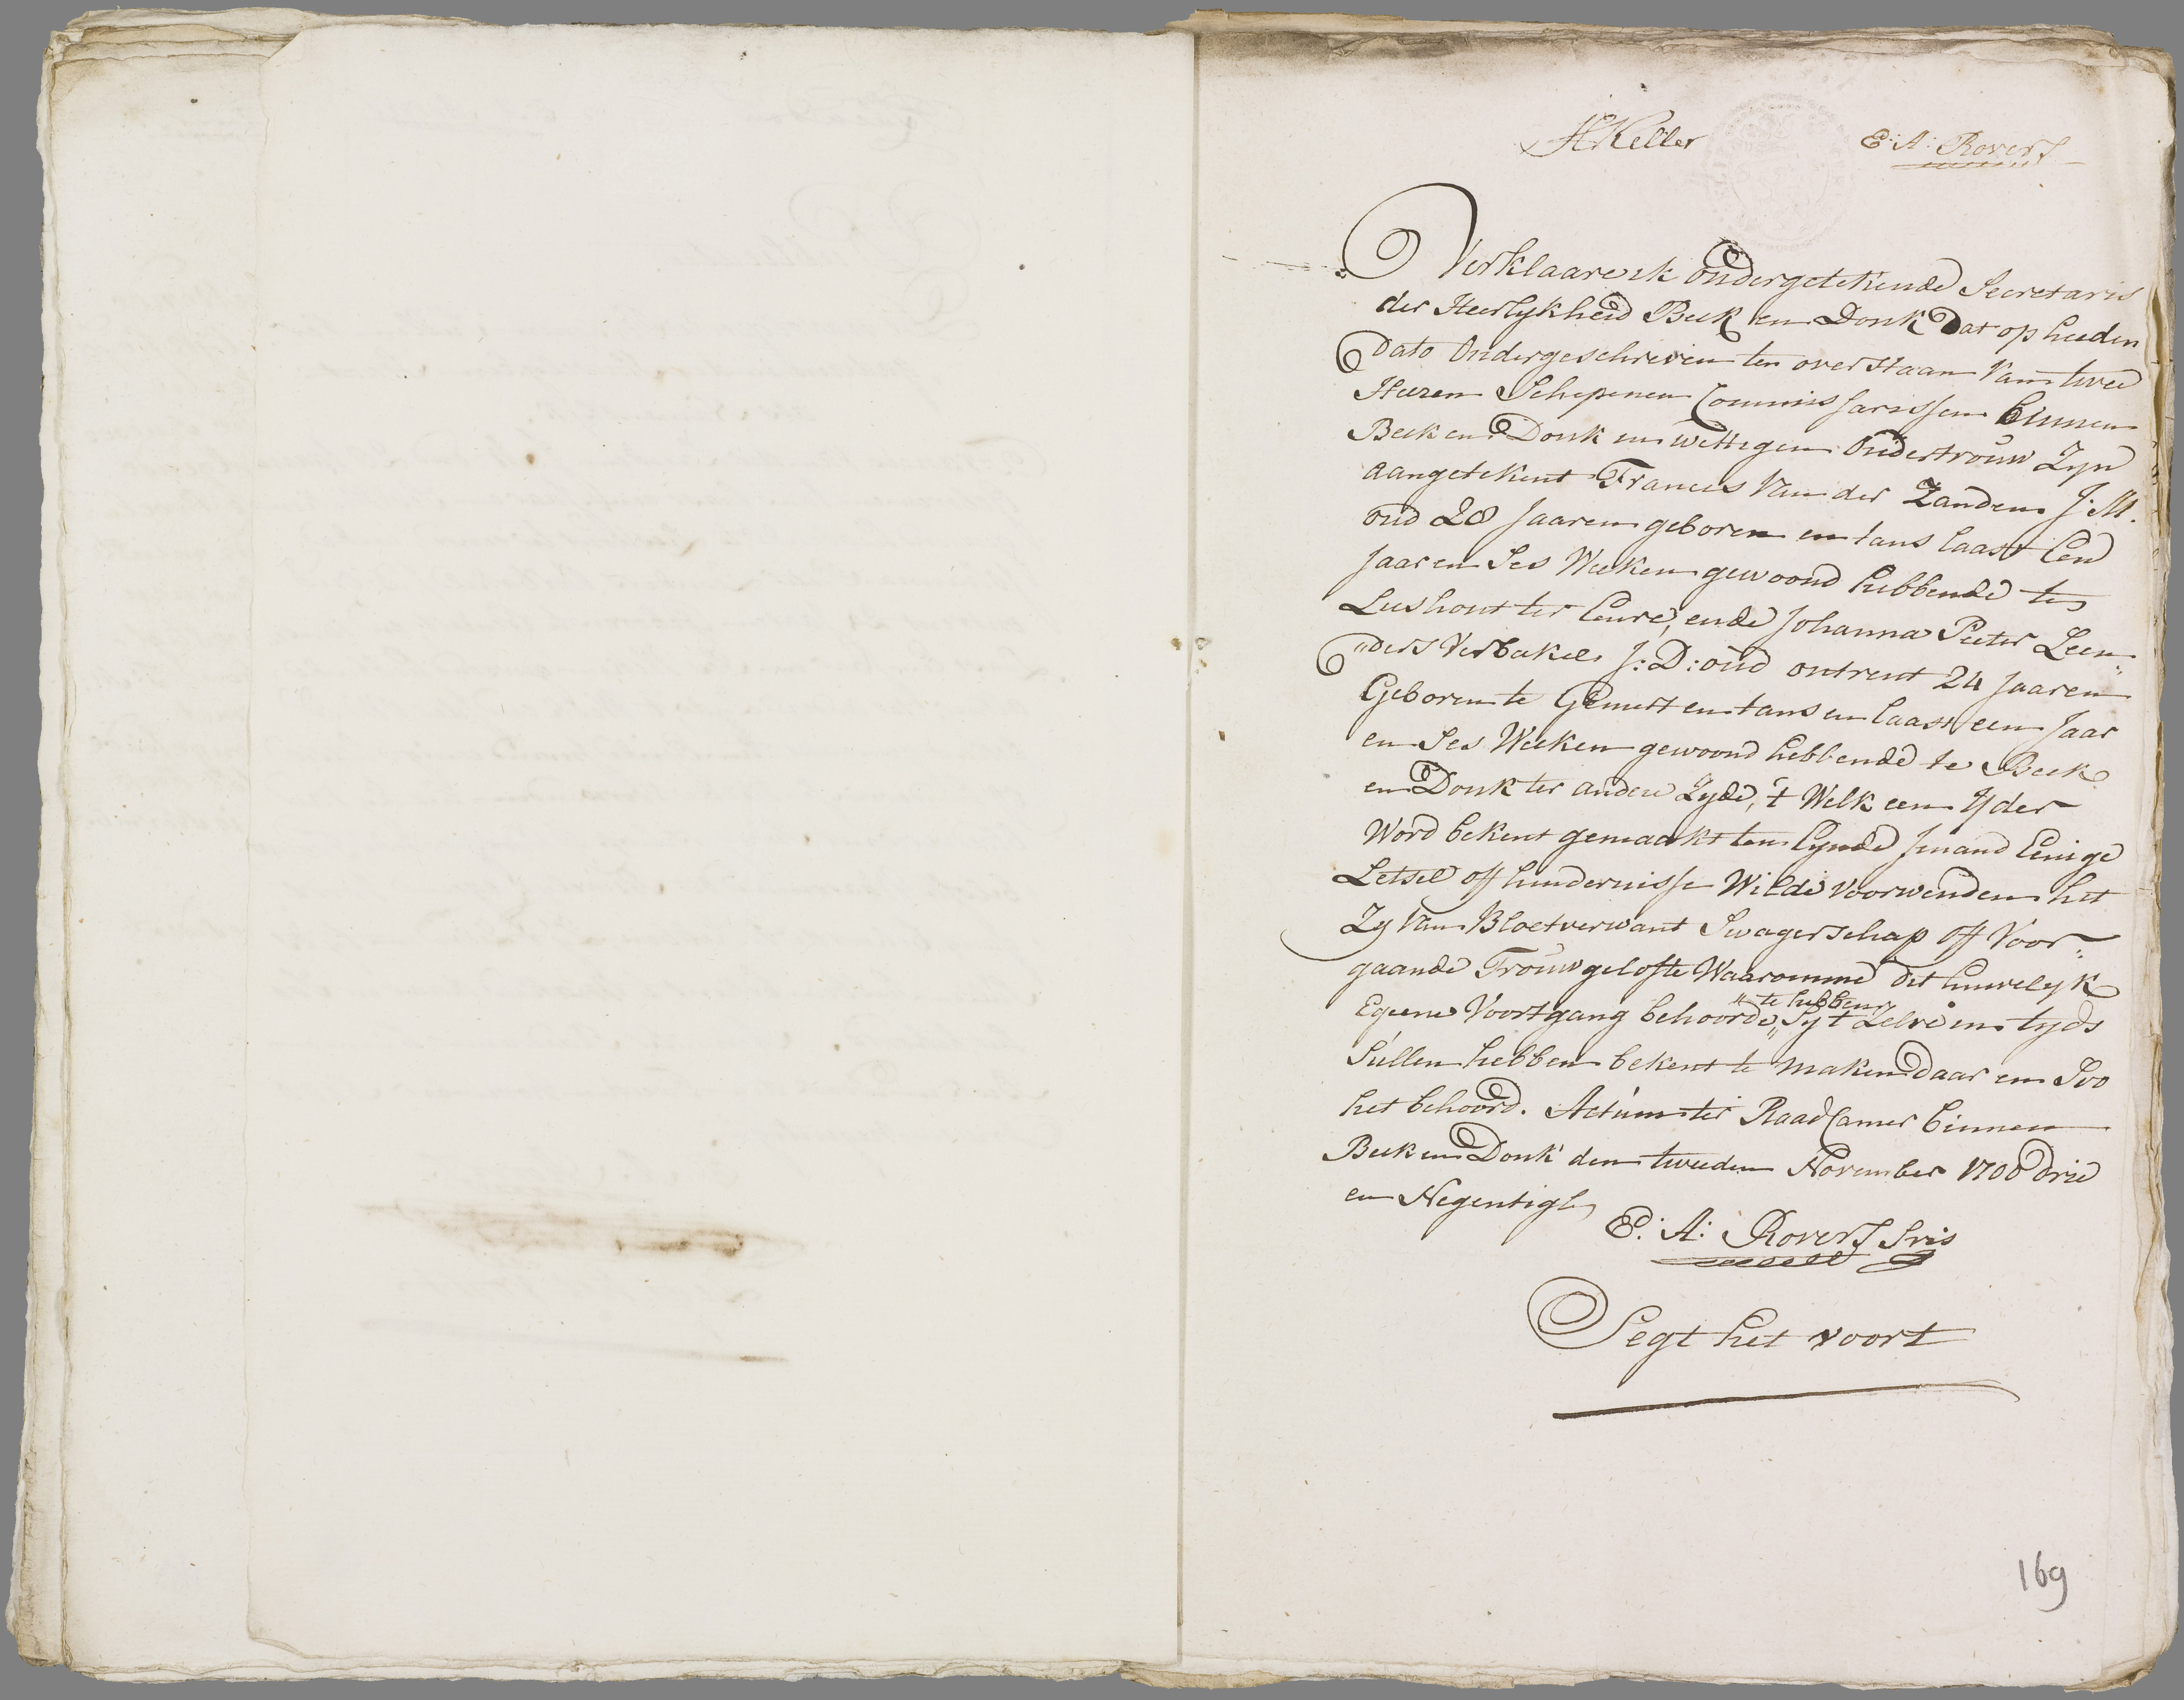 HKeller
E: A: Rovers
Verklaare ik ondergetekende Secretaris
der Heerlykheid Beek en Donk dat op heeden
Dato ondergeschreven ten overstaan van twee
Heeren Schepenen Commissarissen binnen
Beek en Donk in wettigen ondertrouw Zyn
aangetekent Francis van der Zanden J: M.
oud 28 Jaaren geboren en tans laast Een
Jaar en Ses Weeken gewoond hebbende te
Lieshout ter Eenre, ende Johanna Peeter Leen„
„ders Verbakel J: D: oud ontrent 24 Jaaren
Geboren te Gemert en tans en laast een Jaar
en Ses Weeken gewoond hebbende te Beek
en Donk ter andere Zyde, 't Welk een Yder
Word bekent gemaakt ten Eynde Jmand Eenige
Letsel off hindernisse Wilde voorwenden het
Zy van Bloetverwant Swagerschap off Voor„
gaande Trouwgelofte Waaromme dit huwelyk
Egeene Voortgang behoorde „Sy 't Zelve in tyds
„ te hebben
Sullen hebben bekent te maken daar en Soo
het behoord. Actum ter Raad Camer binnen
Beek en Donk den tweeden November 1700 drie
en Negentigh
E: A: Rovers Sris
Segt het voort
169